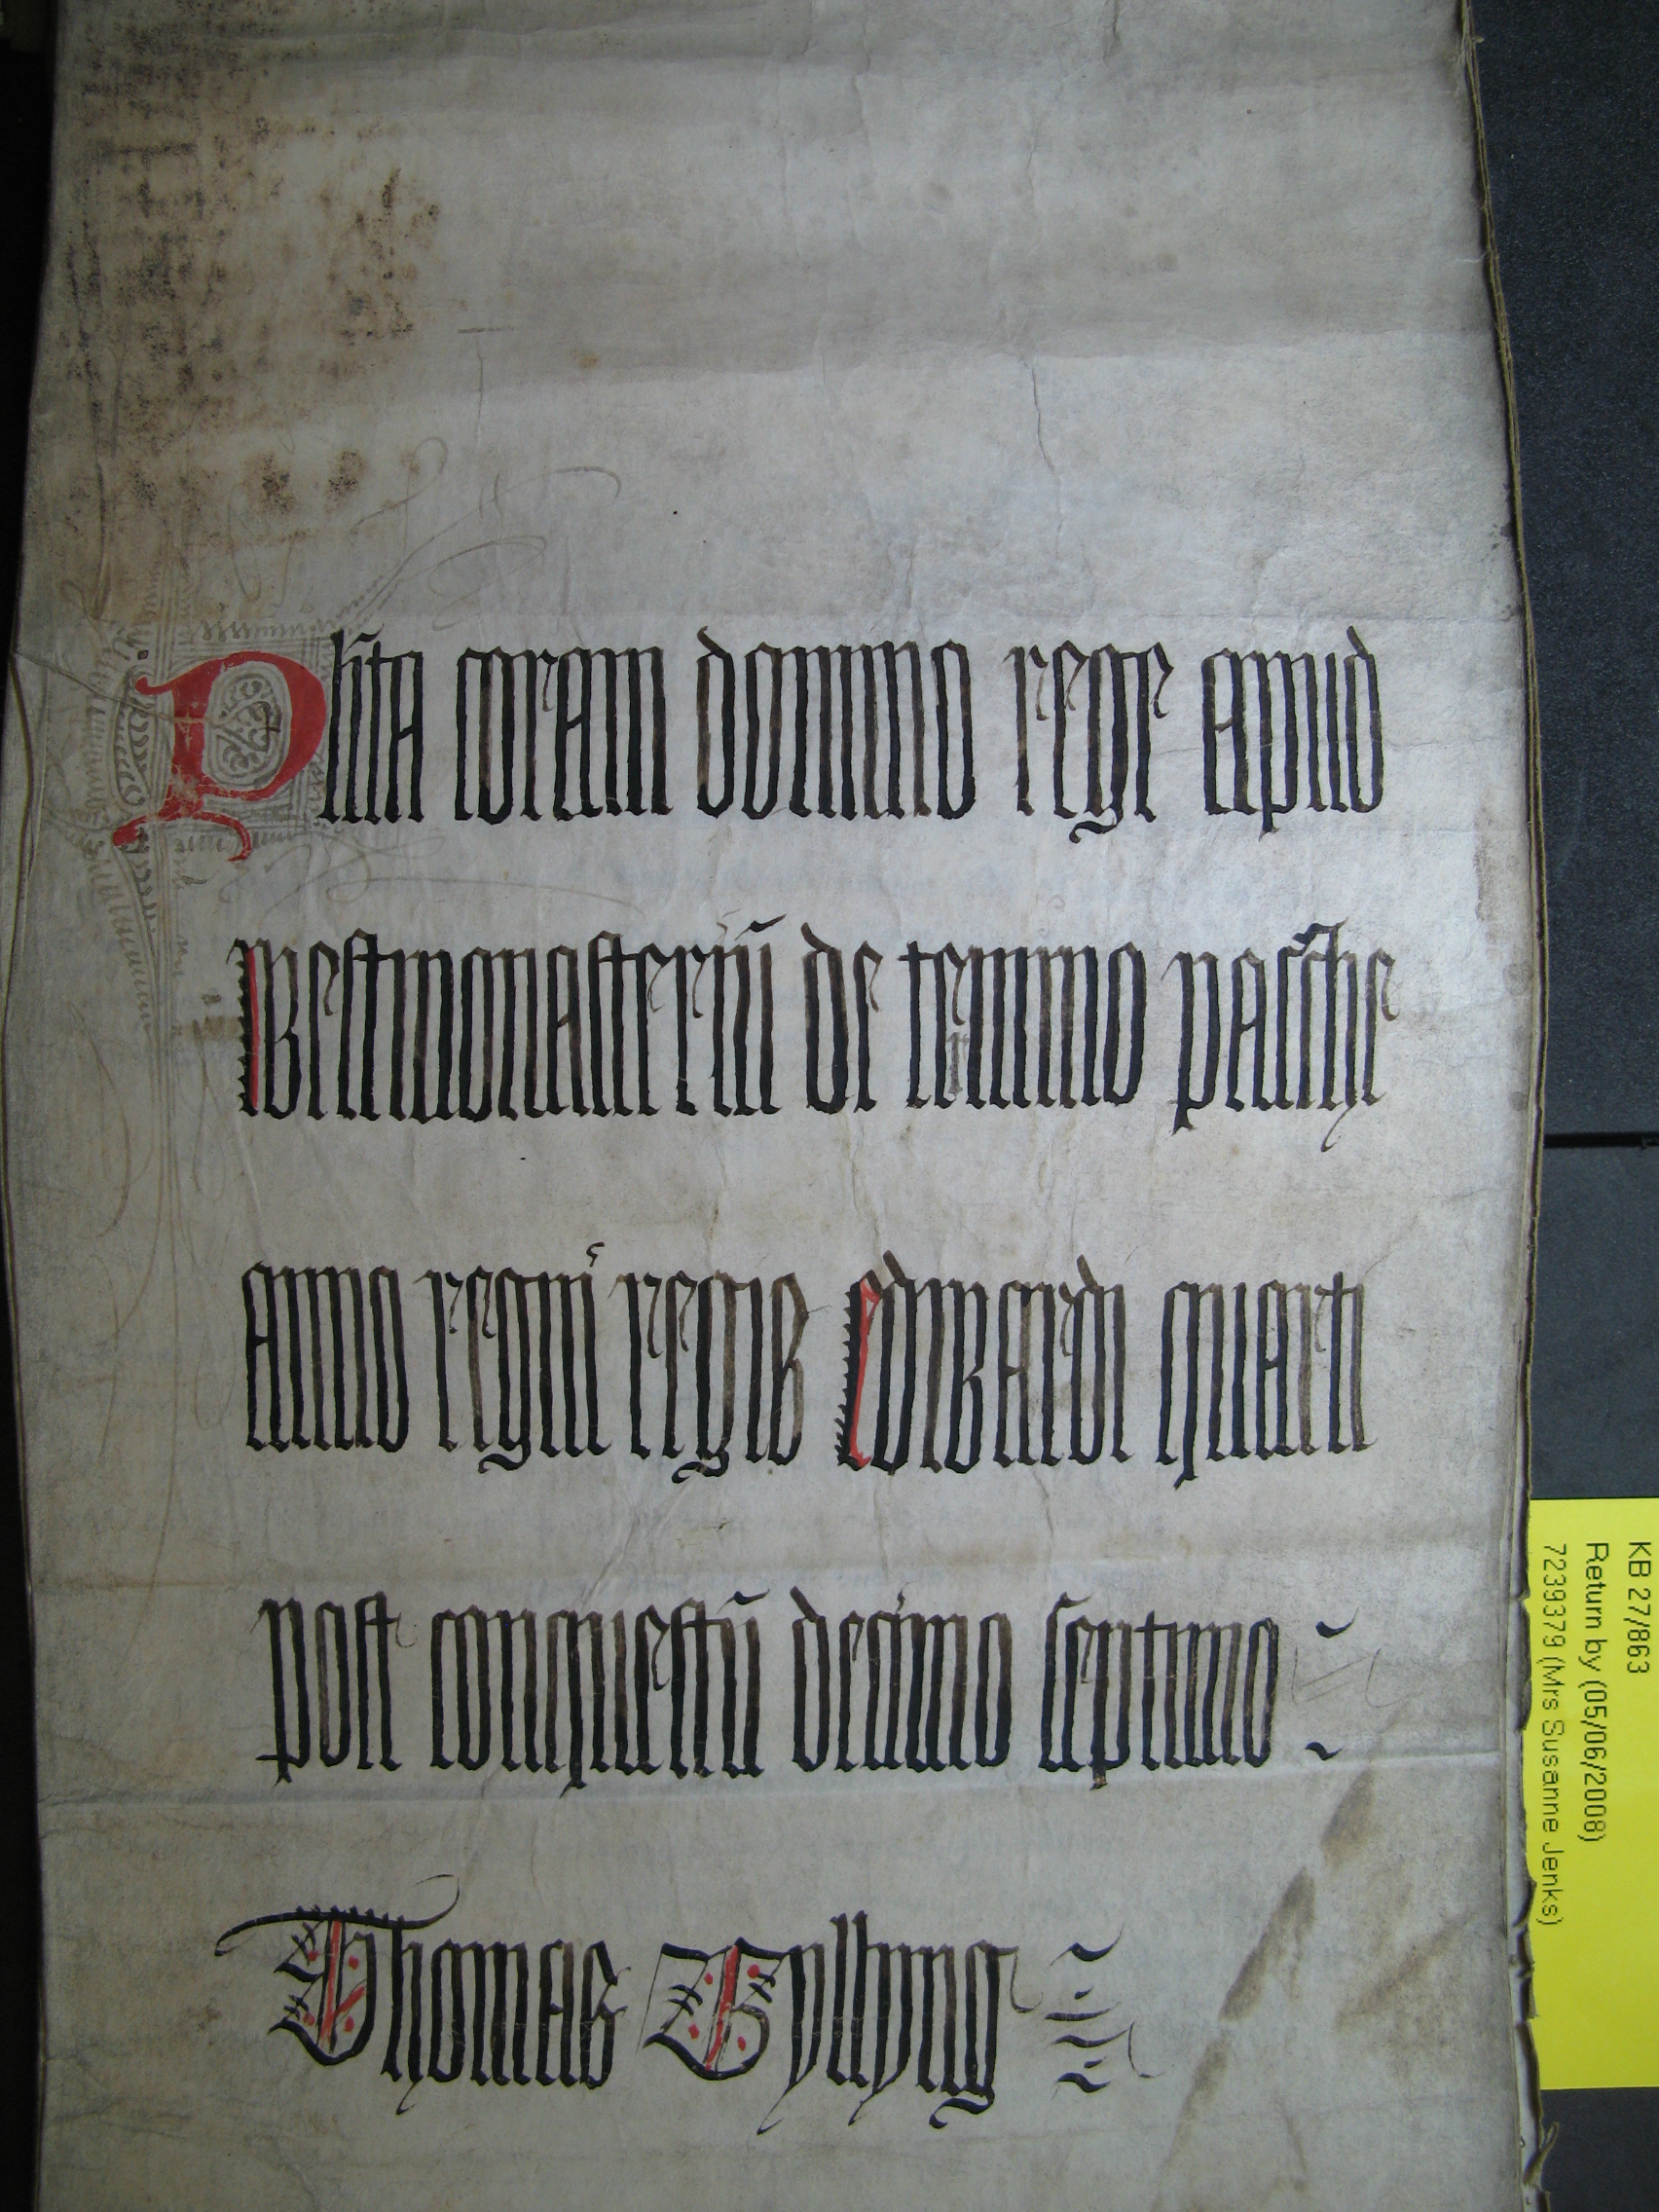 Plita coram domino rege apud
Westmonasteriū de termino pasche
anno regni regis Edwardi quarti
post conquestū decimo septimo
Thomas Byllyng
KB 27/863
Return by (05/06/2008)
7239379 (Mrs Susanne Jenks)